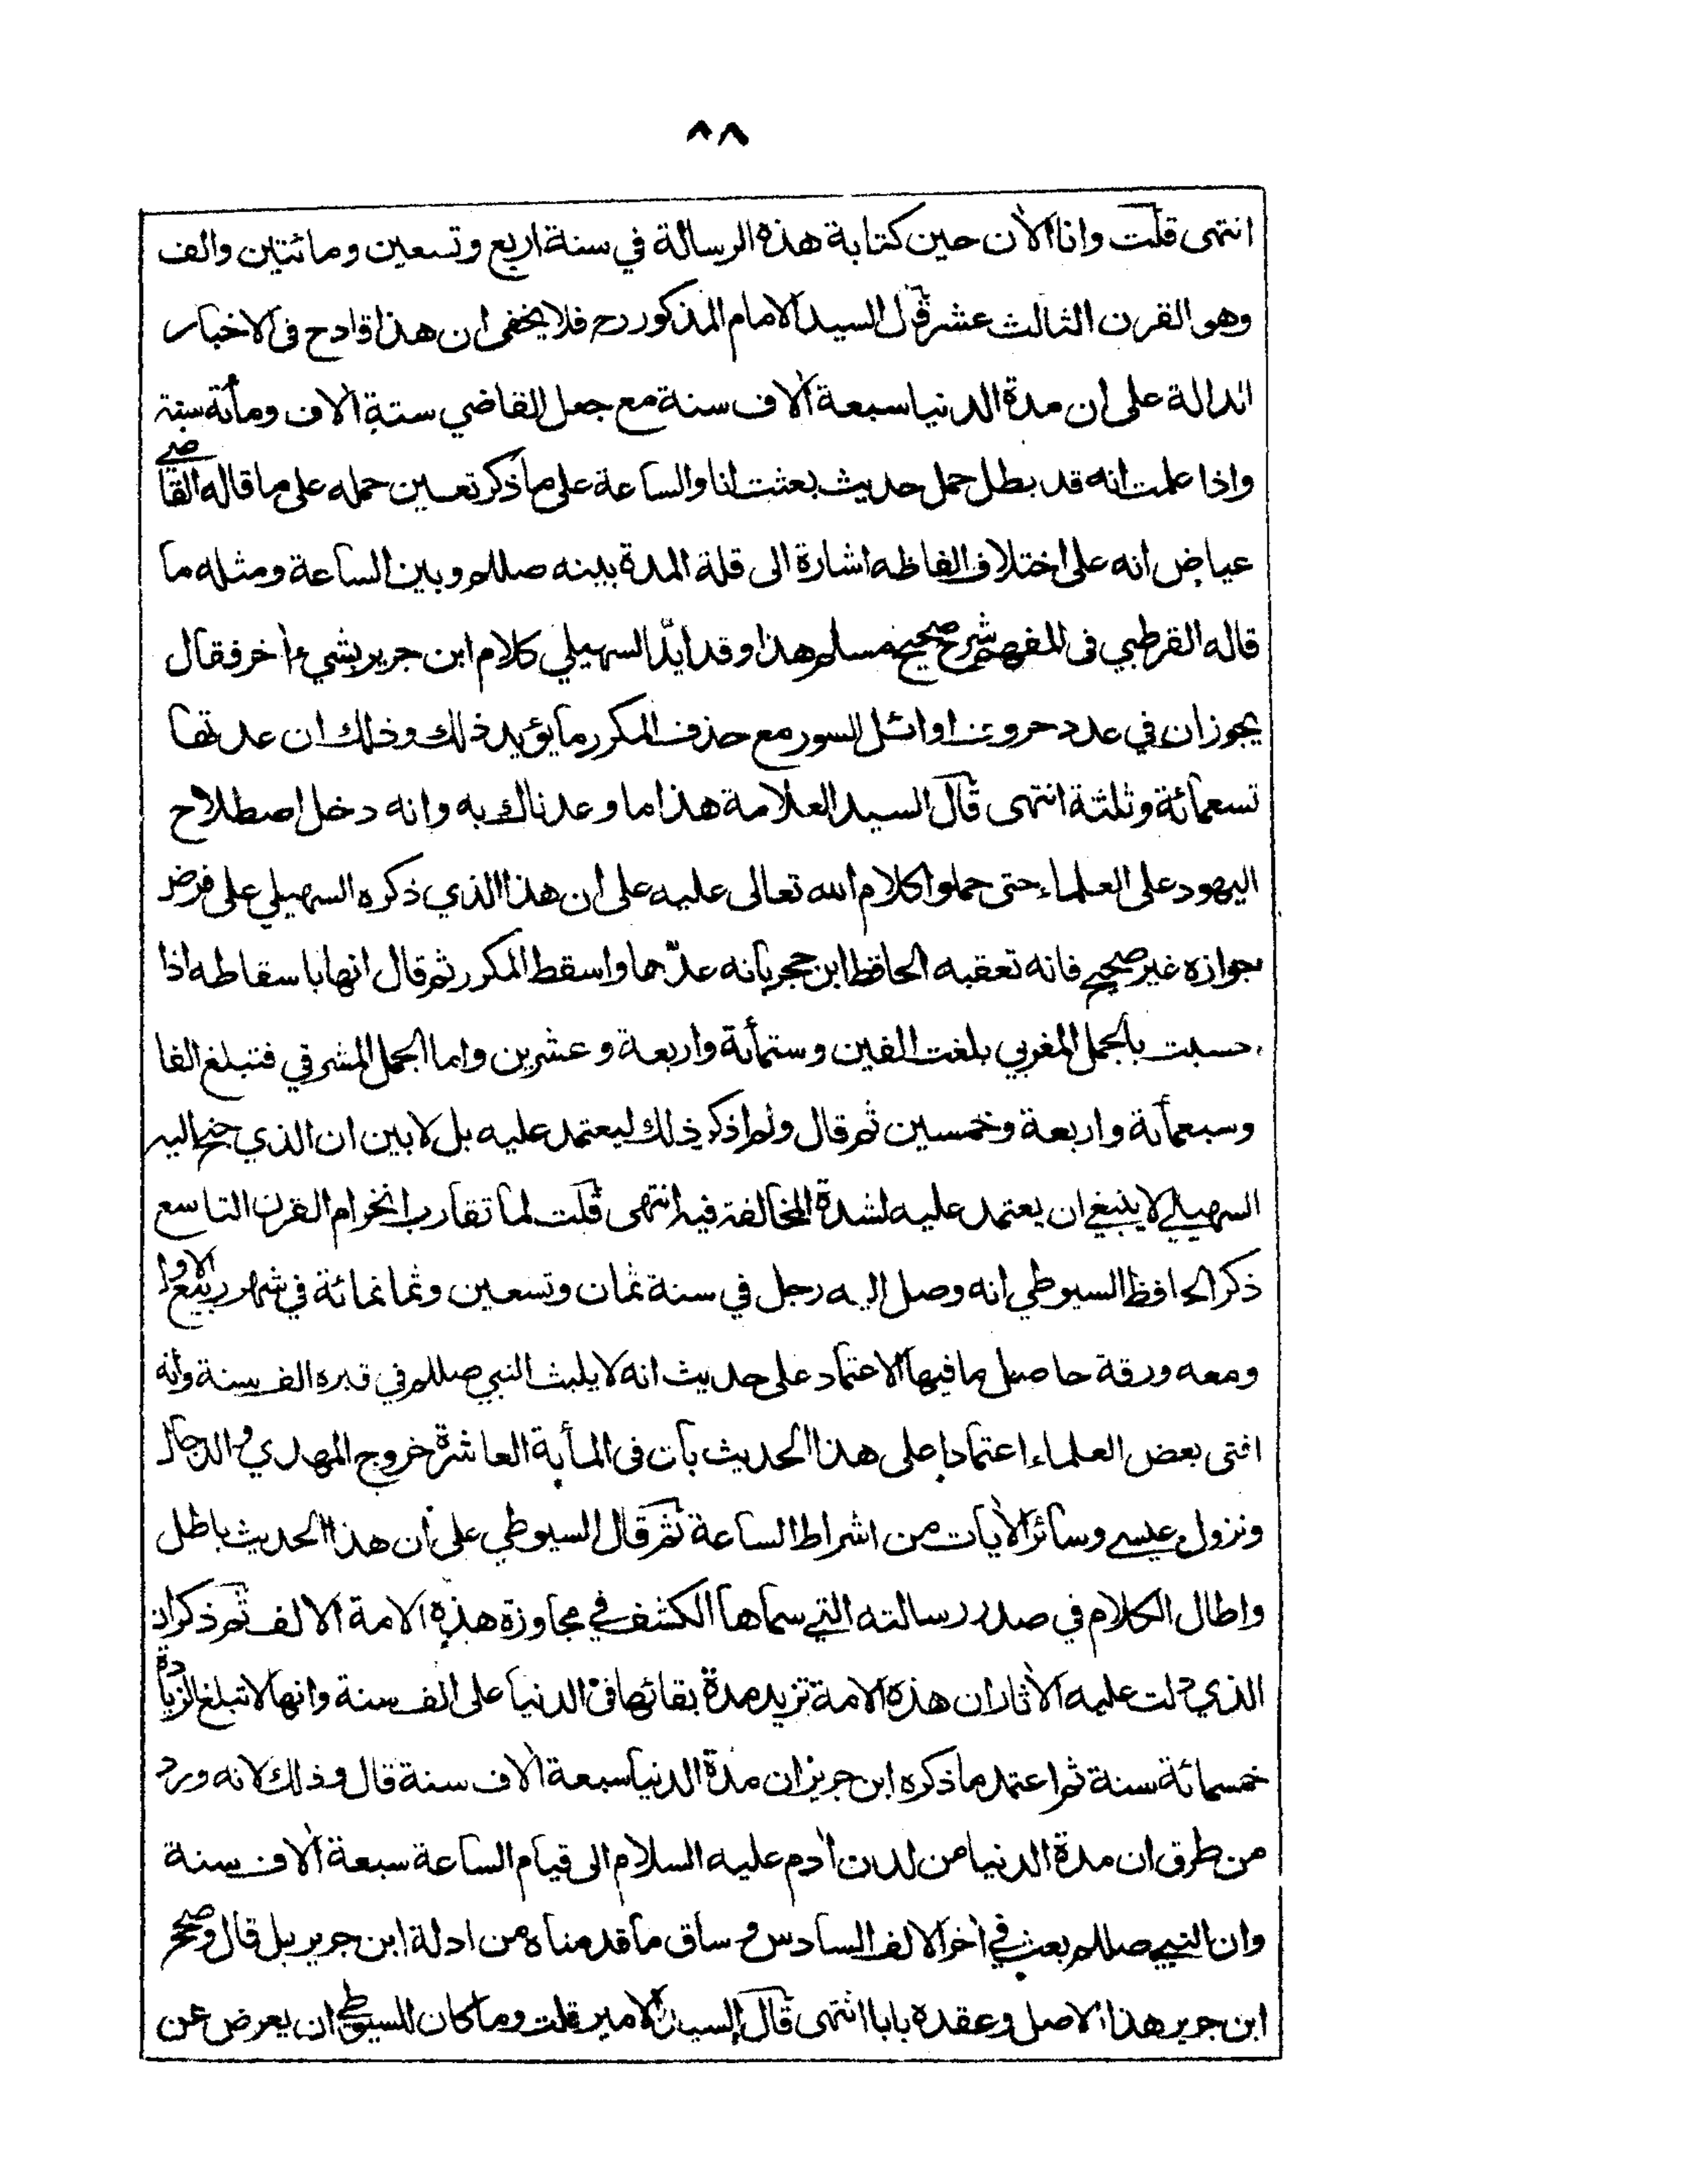 ٨٨
انتهى قلت وانا الآن حين كتابة هذه الرسالة في سنة اربع وتسعين ومائتين والف
وهو القرن الثالث عشر قال السيد الامام المذكور رح فلا يخفى ان هذا قادح فى الاخبار
الدالة على ان مدة الدنيا سبعة آلاف سنة مع جعل القاضي ستة آلاف ومأة سنة
واذا علمت انه قد بطل حمل حديث بعثت انا والساعة على ما ذكر تعين حمله على ما قاله القاضے
عياض انه على اختلاف الفاظه اشارة الى قلة المدة بينه صللم وبين الساعة ومثله ما
قاله القرطبي فى المفهم شرح صحيح مسلم هذا وقد ايّد السهيلي كلام ابن جرير بشيء آخر فقال
يجوز ان في عدد حروف اوائل السور مع حذف المكرر ما يؤيد ذلك وذلك ان عدتها
تسعمائة وثلثة انتهى قال السيد العلامة هذا ما وعدناك به وانه دخل اصطلاح
اليهود على العلماء حتى حملوا كلام الله تعالى عليه على ان هذا الذي ذكره السهيلي على فرض
جوازه غير صحيح فانه تعقبه الحافظ ابن حجر بانه عدّها واسقط المكرر ثم قال انها باسقاطه اذا
حسبت بالجمل المغربي بلغت الفين وستمأة واربعة وعشرين واما الجمل المشرقي فتبلغ الفا
وسبعمأة واربعة وخمسين ثم قال ولم اذكر ذلك ليعتمد عليه بل لابين ان الذي جنح اليه
السهيلے لا ينبغے ان يعتمد عليه لشدة المخالفة فيه انتهى قلت لما تقارب انخرام القرن التاسع
ذكر الحافظ السيوطي انه وصل اليه رجل في سنة ثمان وتسعين وثمانمائة في شهر ربيع الاول
ومعه ورقة حاصل ما فيها الاعتماد على حديث انه لا يلبث النبي صللم في قبره الف سنة وانه
افتى بعض العلماء اعتمادا على هذا الحديث بان فى المأية العاشرة خروج المهدي والدجال
ونزول عيسے وسائر الآيات من اشراط الساعة ثم قال السيوطي على ان هذا الحديث باطل
واطال الكلام في صدر رسالته التے سماها الكشف في مجاوزة هذه الامة الالف ثم ذكر ان
الذي دلت عليه الآثار ان هذه الامة تزيد مدة بقائها فى الدنيا على الف سنة وانها لا تبلغ الزيادة
خمسمائة سنة ثم اعتمد ما ذكره ابن جرير ان مدة الدنيا سبعة آلاف سنة قال وذلك لانه ورد
من طرق ان مدة الدنيا من لدن آدم عليه السلام الى قيام الساعة سبعة آلاف سنة
وان النبي صللم بعث في آخر الالف السادس وساق ما قدمناه من ادلة ابن جرير بل قال وصحح
ابن جرير هذا الاصل وعقده بابا انتهى قال السيد الامير قلت وما كان للسيوطي ان يعرض عن